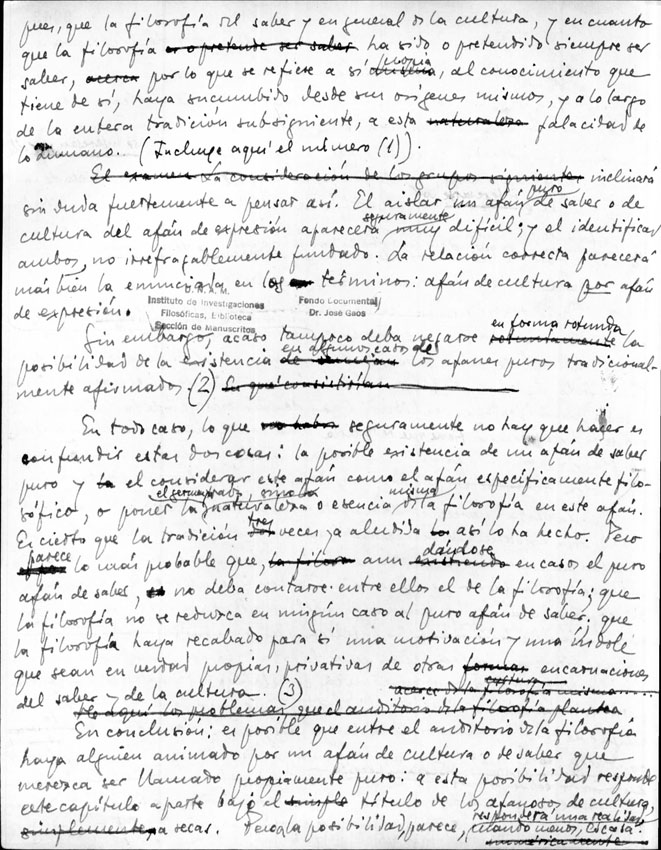 pues, que la filosofía del saber y en general de la cultura, y en cuanto
que la filosofía es o pretende ser saber ha sido o pretendido siempre ser
saber, acerca por lo que se refiere a sí misma propia, al conocimiento que
tiene de sí, haya sucumbido desde sus orígenes mismos, y a lo largo
de la entera tradición subsiguiente, a esta naturaleza falacidad de
lo humano. (Incluye aquí el número (1)).
El examen La consideración de los grupos siguientes inclinará
sin duda fuertemente a pensar así. El aislar un afán puro de saber o de
cultura del afán de expresión aparecerá seguramente muy difícil; y el identificar
ambos, no irrefragablemente fundado. La relación correcta parecerá
más bien la enunciada en los términos: afán de cultura por afán
de expresión.
Instituto de Investigaciones
Filosóficas, Biblioteca
Sección de Manuscritos
Fondo Documental
Dr. José Gaos
Sin embargo, acaso tampoco deba negarse en forma rotunda rotundamente la
posibilidad de la existencia en algunos casos de los afanes puros tradicional-
mente afirmados. (2) En qué consistirían
En todo caso, lo que no habrá seguramente no hay que hacer es
confundir estas dos cosas: la posible existencia de un afán de saber
puro y la el considerar este afán como el afán específicamente filo-
sófico, o poner la naturaleza o esencia misma de la filosofía en este afán.
Es cierto que la tradición tres veces ya aludida así lo ha hecho. Pero
parece lo más probable que, la filoso aun dándose existiendo en casos el puro
afán de saber, no deba contarse entre ellos el de la filosofía; que
la filosofía no se reduzca en ningún caso al puro afán de saber; que
la filosofía haya recabado para sí una motivación y una índole
que sean en verdad propias, privativas de otras formas encarnaciones
del saber y de la cultura. (3) acerca de la filosofía misma
He aquí los problemas que el auditorio de la filosofía plantea
En conclusión: es posible que entre el auditorio de la filosofía
haya alguien animado por un afán de cultura o de saber que
merezca ser llamado propiamente puro: a esta posibilidad responde
este capítulo aparte bajo el simple título de los afanosos de cultura,
simplemente, a secas. Pero a la posibilidad, parece, responderá una realidad, cuando menos, escasa.
numéricamente